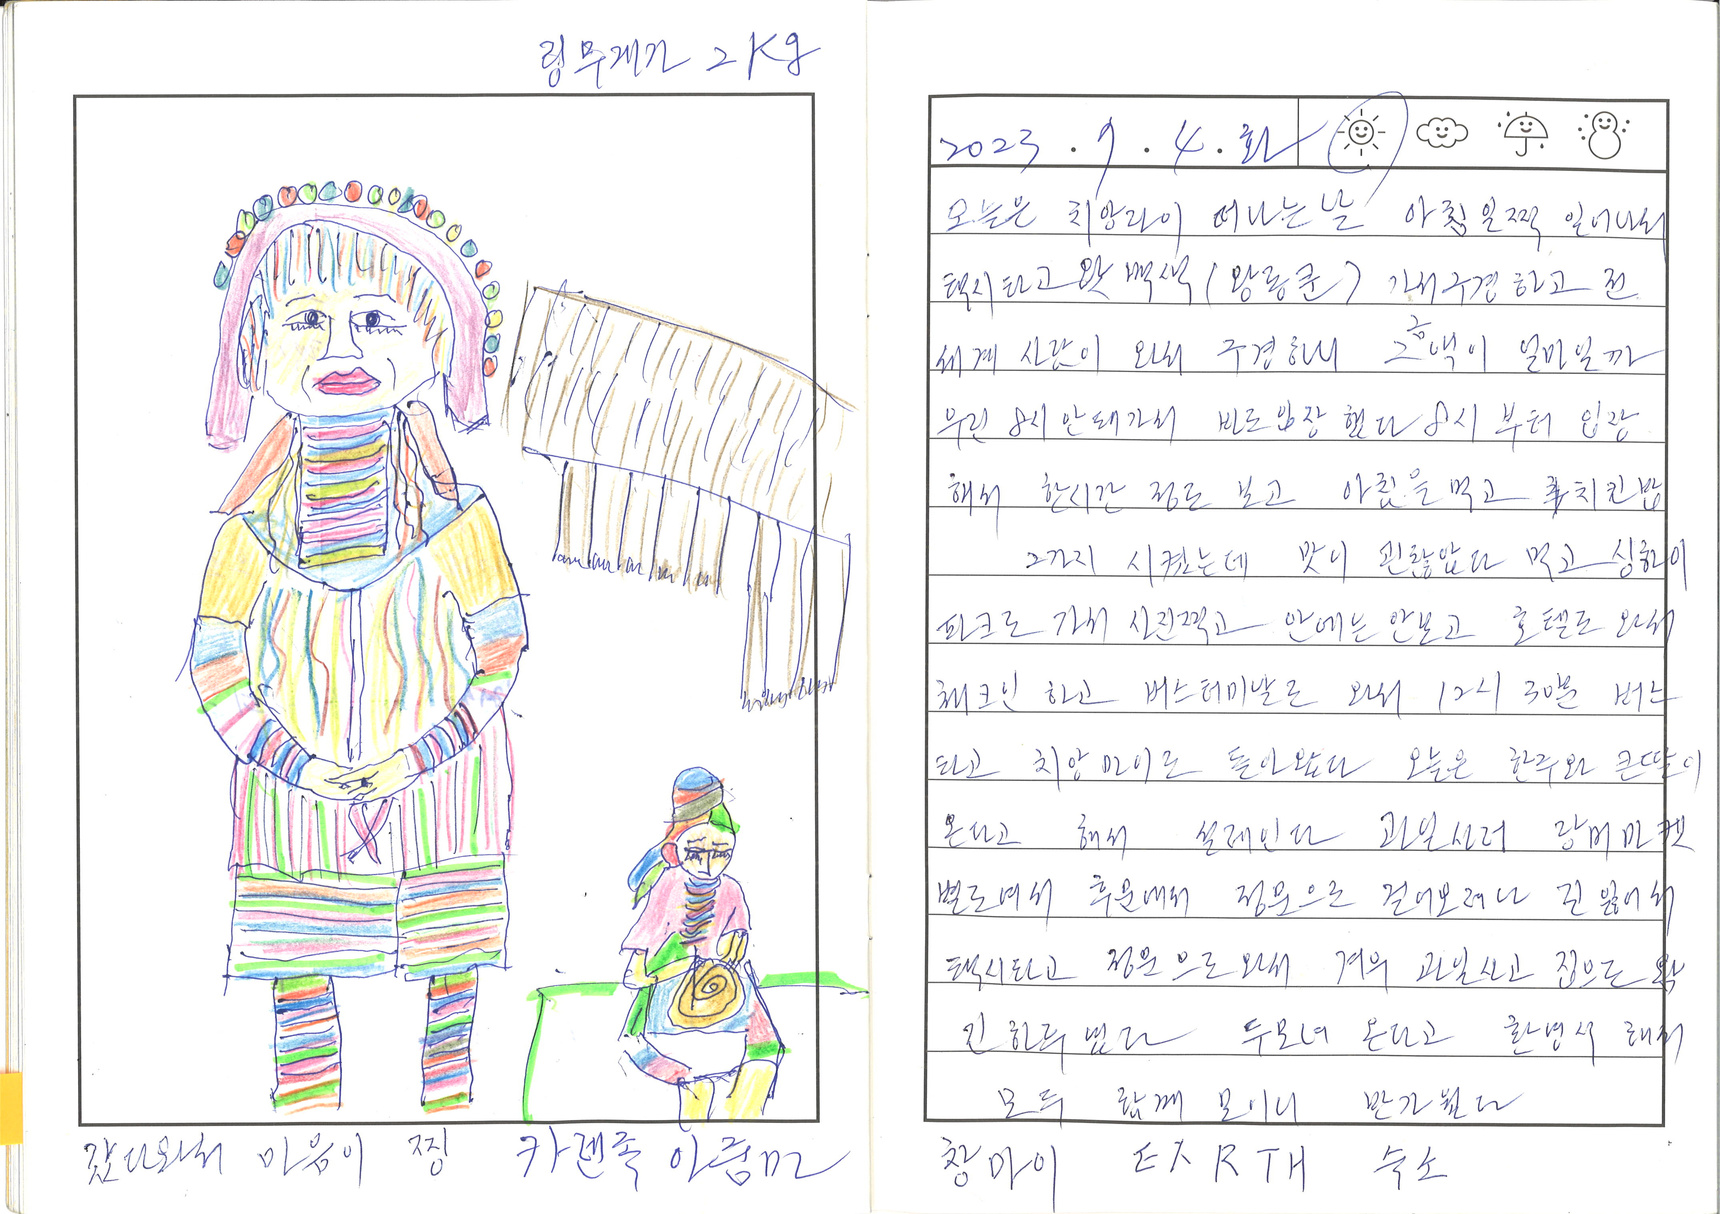 링무게가 2Kg
갔다와서 마음이 찡 카렌족 아줌마
2023.7.4.화
오늘은 치앙라이 떠나는날 아침일찍 일어나서
택시타고 왓 백색(왕룽쿤) 가서구경하고 전
세계 사람이 와서 구경하니 금액이 얼마일까
우린 8시 안돼가서 바로입장했다 8시 부터 입장
해서 한시간 정도 보고 아침을먹고 치킨밥
2가지 시켰는데 맛이 괜찮았다 먹고 싱하이
파크로 가서 사진찍고 안에는안보고 호텔로 와서
체크인 하고 버스터미날로 와서 12시 30분 버스
타고 치앙마이로 돌아왔다 오늘은 한주와 큰딸이
온다고 해서 설레인다 과일사러 람머마켓
별로여서 후문에서 정문으로 걸어오려다 길 잃어서
택시타고 정문으로와서 겨우 과일사고 집으로 왔
긴 하루 였다 두모녀 온다고 환영식 해서
모두 함께 모이니 반가웠다
창마이 EARTH 숙소